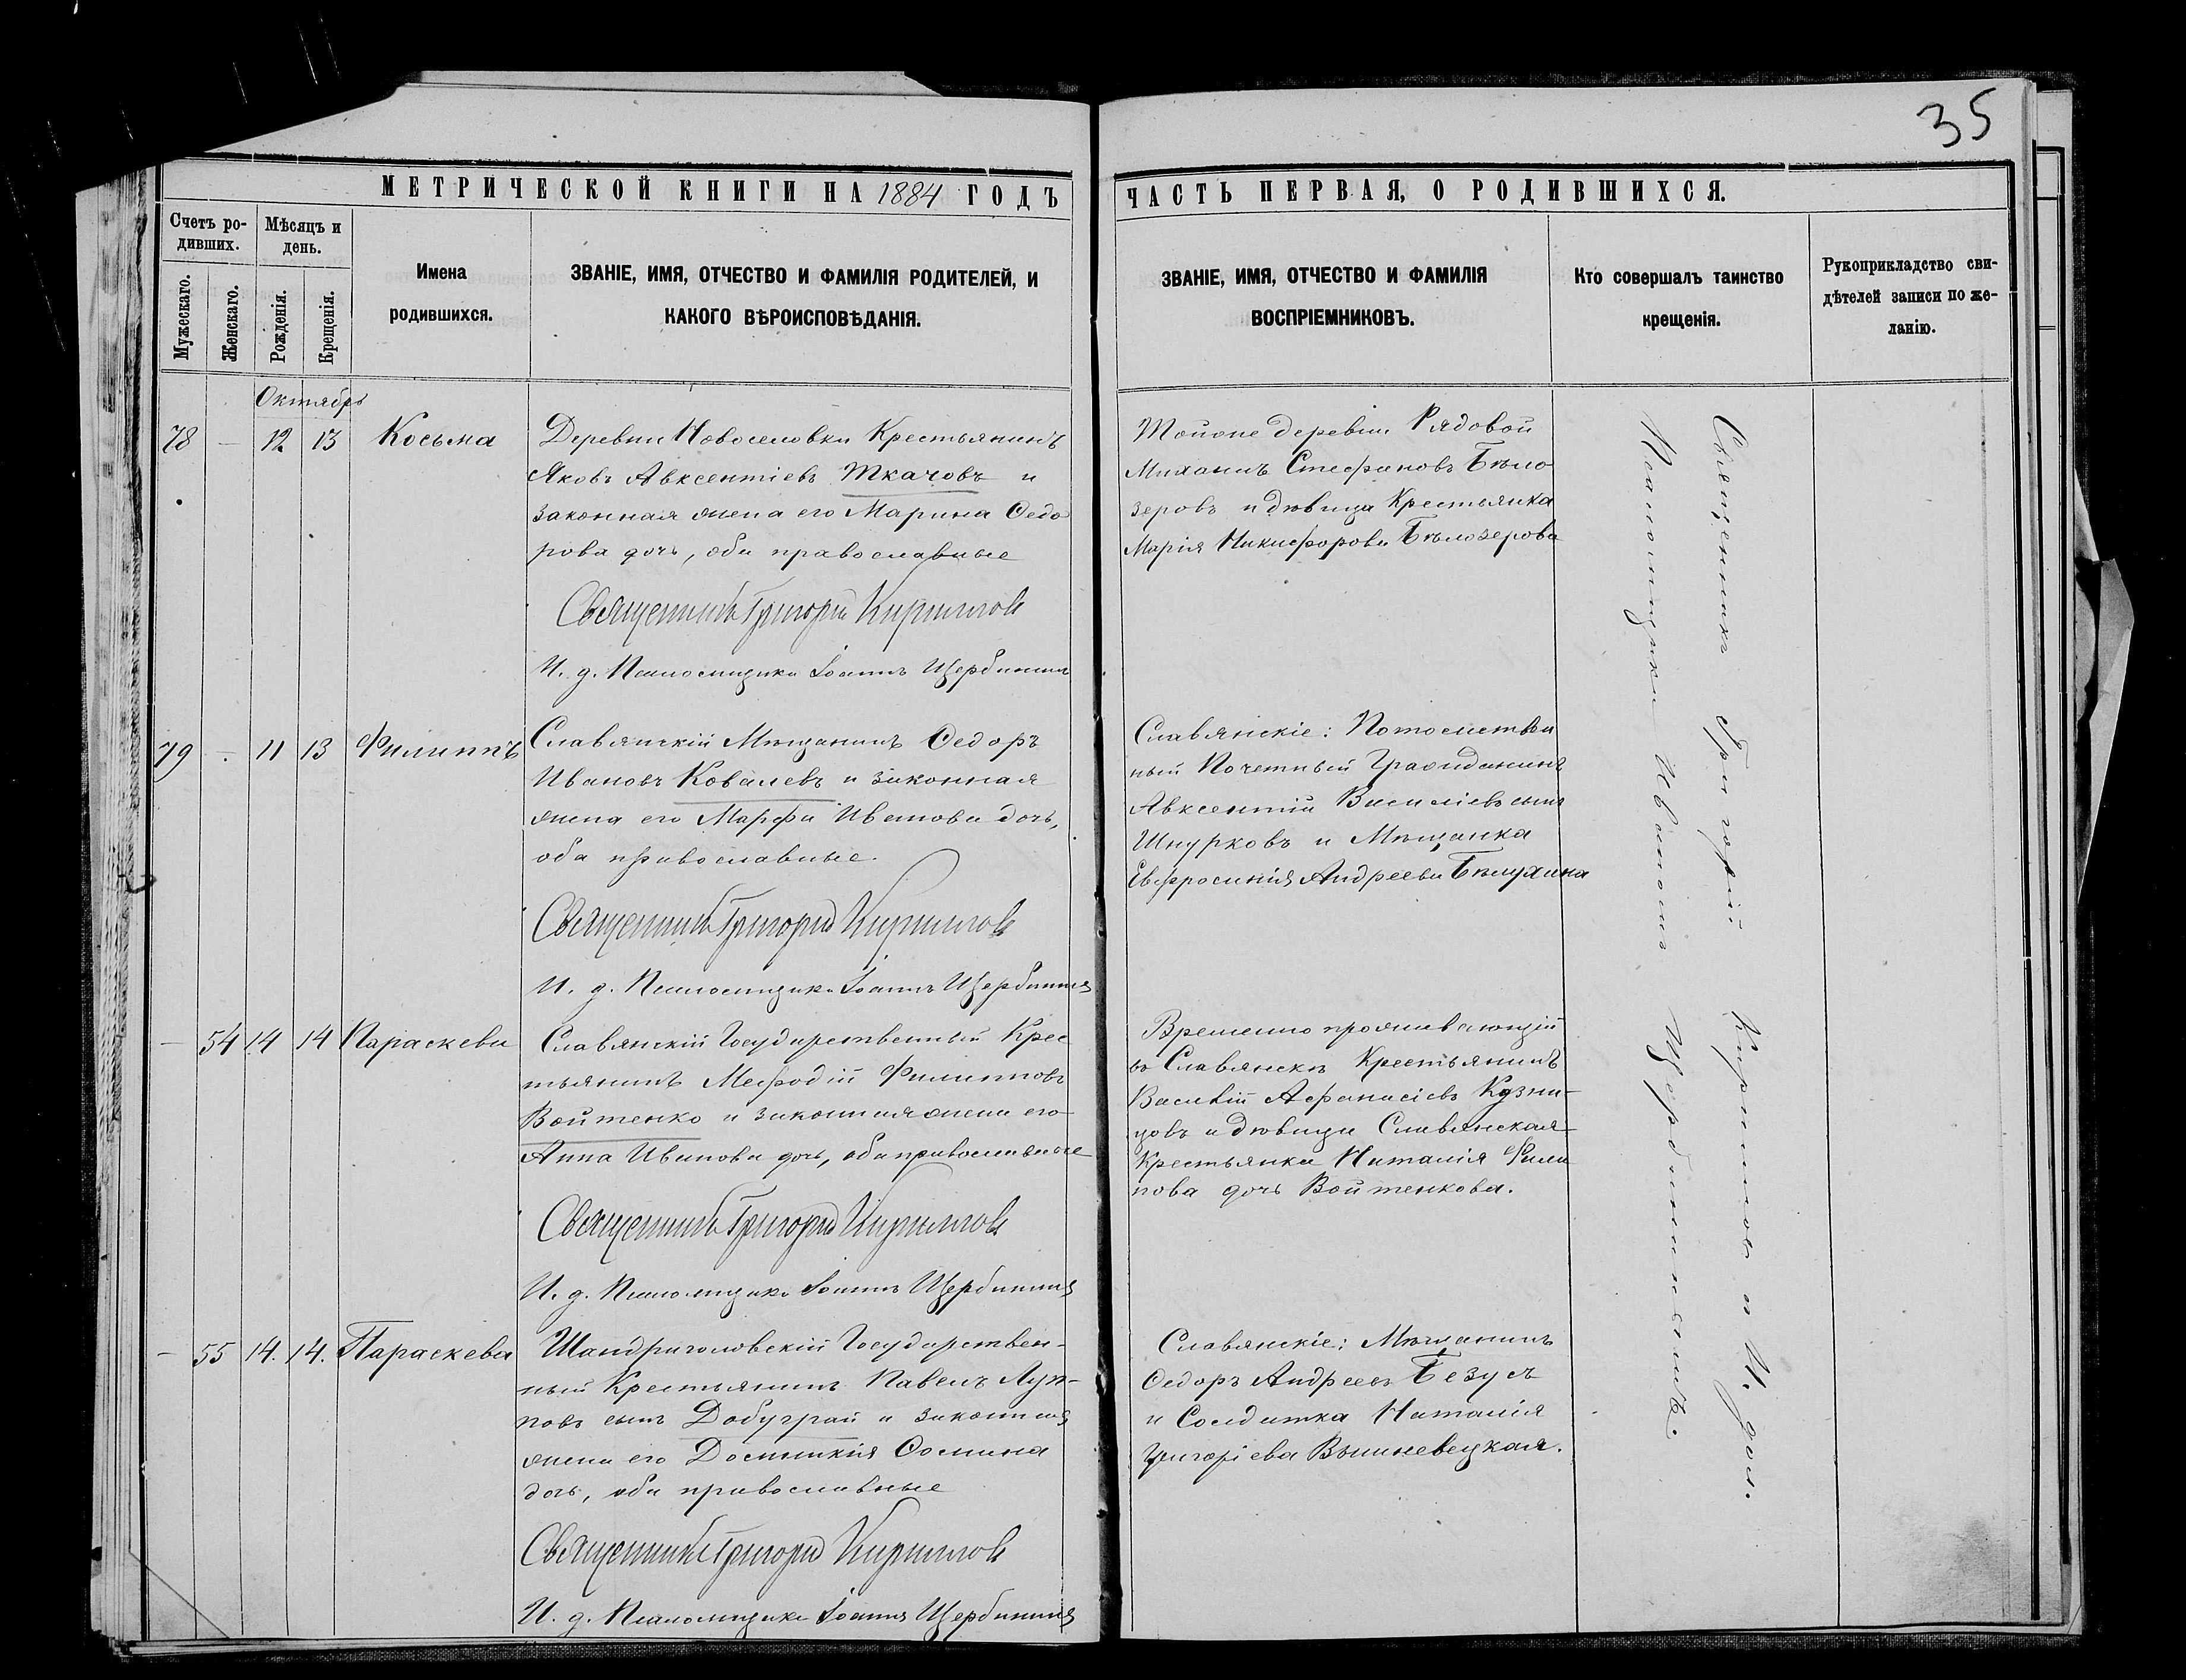 35
МЕТРИЧЕСКОЙ КНИГИ НА 1884 ГОДЪ
Счетъ ро-
дивших.
Мѣсяцъ и
день.
Мужескаго.
Женскаго.
Рожденія.
Крещенія.
Имена
родившихся.
ЗВАНІЕ, ИМЯ, ОТЧЕСТВО И ФАМИЛІЯ РОДИТЕЛЕЙ, И
КАКОГО ВѢРОИСПОВѢДАНІЯ.
Октябрь
78 – 12 13 Косьма
Деревни Новоселовки Крестьянинъ
Яковъ Авксентіевъ Ткачовъ и
законная жена его Марина Ѳедо
рова дочь, оба православные
Священникъ Григорій Кирилловъ
И. д. Псаломщика Іоаннъ Щербининъ
79 – 11 13 Филиппъ
Славянскій Мѣщанинъ Ѳедоръ
Ивановъ Ковалевъ и законная
жена его Марфа Иванова дочь,
оба православные.
Священникъ Григорій Кирилловъ
И. д. Псаломщика Іоаннъ Щербининъ
– 54 14 14 Параскева
Славянскій Государственный Крес
тьянинъ Меѳодій Филипповъ
Войтенко и законная жена его
Анна Иванова дочь, оба православные
Священникъ Григорій Кирилловъ
И. д. Псаломщика Іоаннъ Щербининъ
– 55 14. 14. Параскева
Шандриголовскій Государствен-
ный Крестьянинъ Павелъ
сынъ Добуграй и законная
жена его Ѳомина
дочь, оба православные
Священникъ Григорій Кирилловъ
И. д. Псаломщика Іоаннъ Щербининъ
ЧАСТЬ ПЕРВАЯ, О РОДИВШИХСЯ.
ЗВАНІЕ, ИМЯ, ОТЧЕСТВО И ФАМИЛІЯ
ВОСПРІЕМНИКОВЪ.
Кто совершалъ таинство
крещенія.
Рукоприкладство сви-
дѣтелей записи по же-
ланію.
Тойже деревни Рядовой
Михаилъ Стефановъ Бѣло
зеровъ и дѣвица Крестьянка
Марія Никифорова Бѣлозерова
Славянскіе: Потомствен
ный Почетный Гражданинъ
Авксентій Василіевъ сынъ
Шнурковъ и Мѣщанка
Евфросинія Андреева
Временно проживающій
въ Славянскѣ Крестьянинъ
Василій Афанасіевъ Кузне-
цовъ и дѣвица Славянская
Крестьянка Наталія Фили
пова дочь Войтенкова.
Славянскіе: Мѣщанинъ
Ѳедоръ Андреевъ Безусъ
и Солдатка Наталія
Григоріева Вышневецкая.
Священникъ Григорій Кирилловъ и И. дол.
Псаломщика Иванъ Щербининъ.